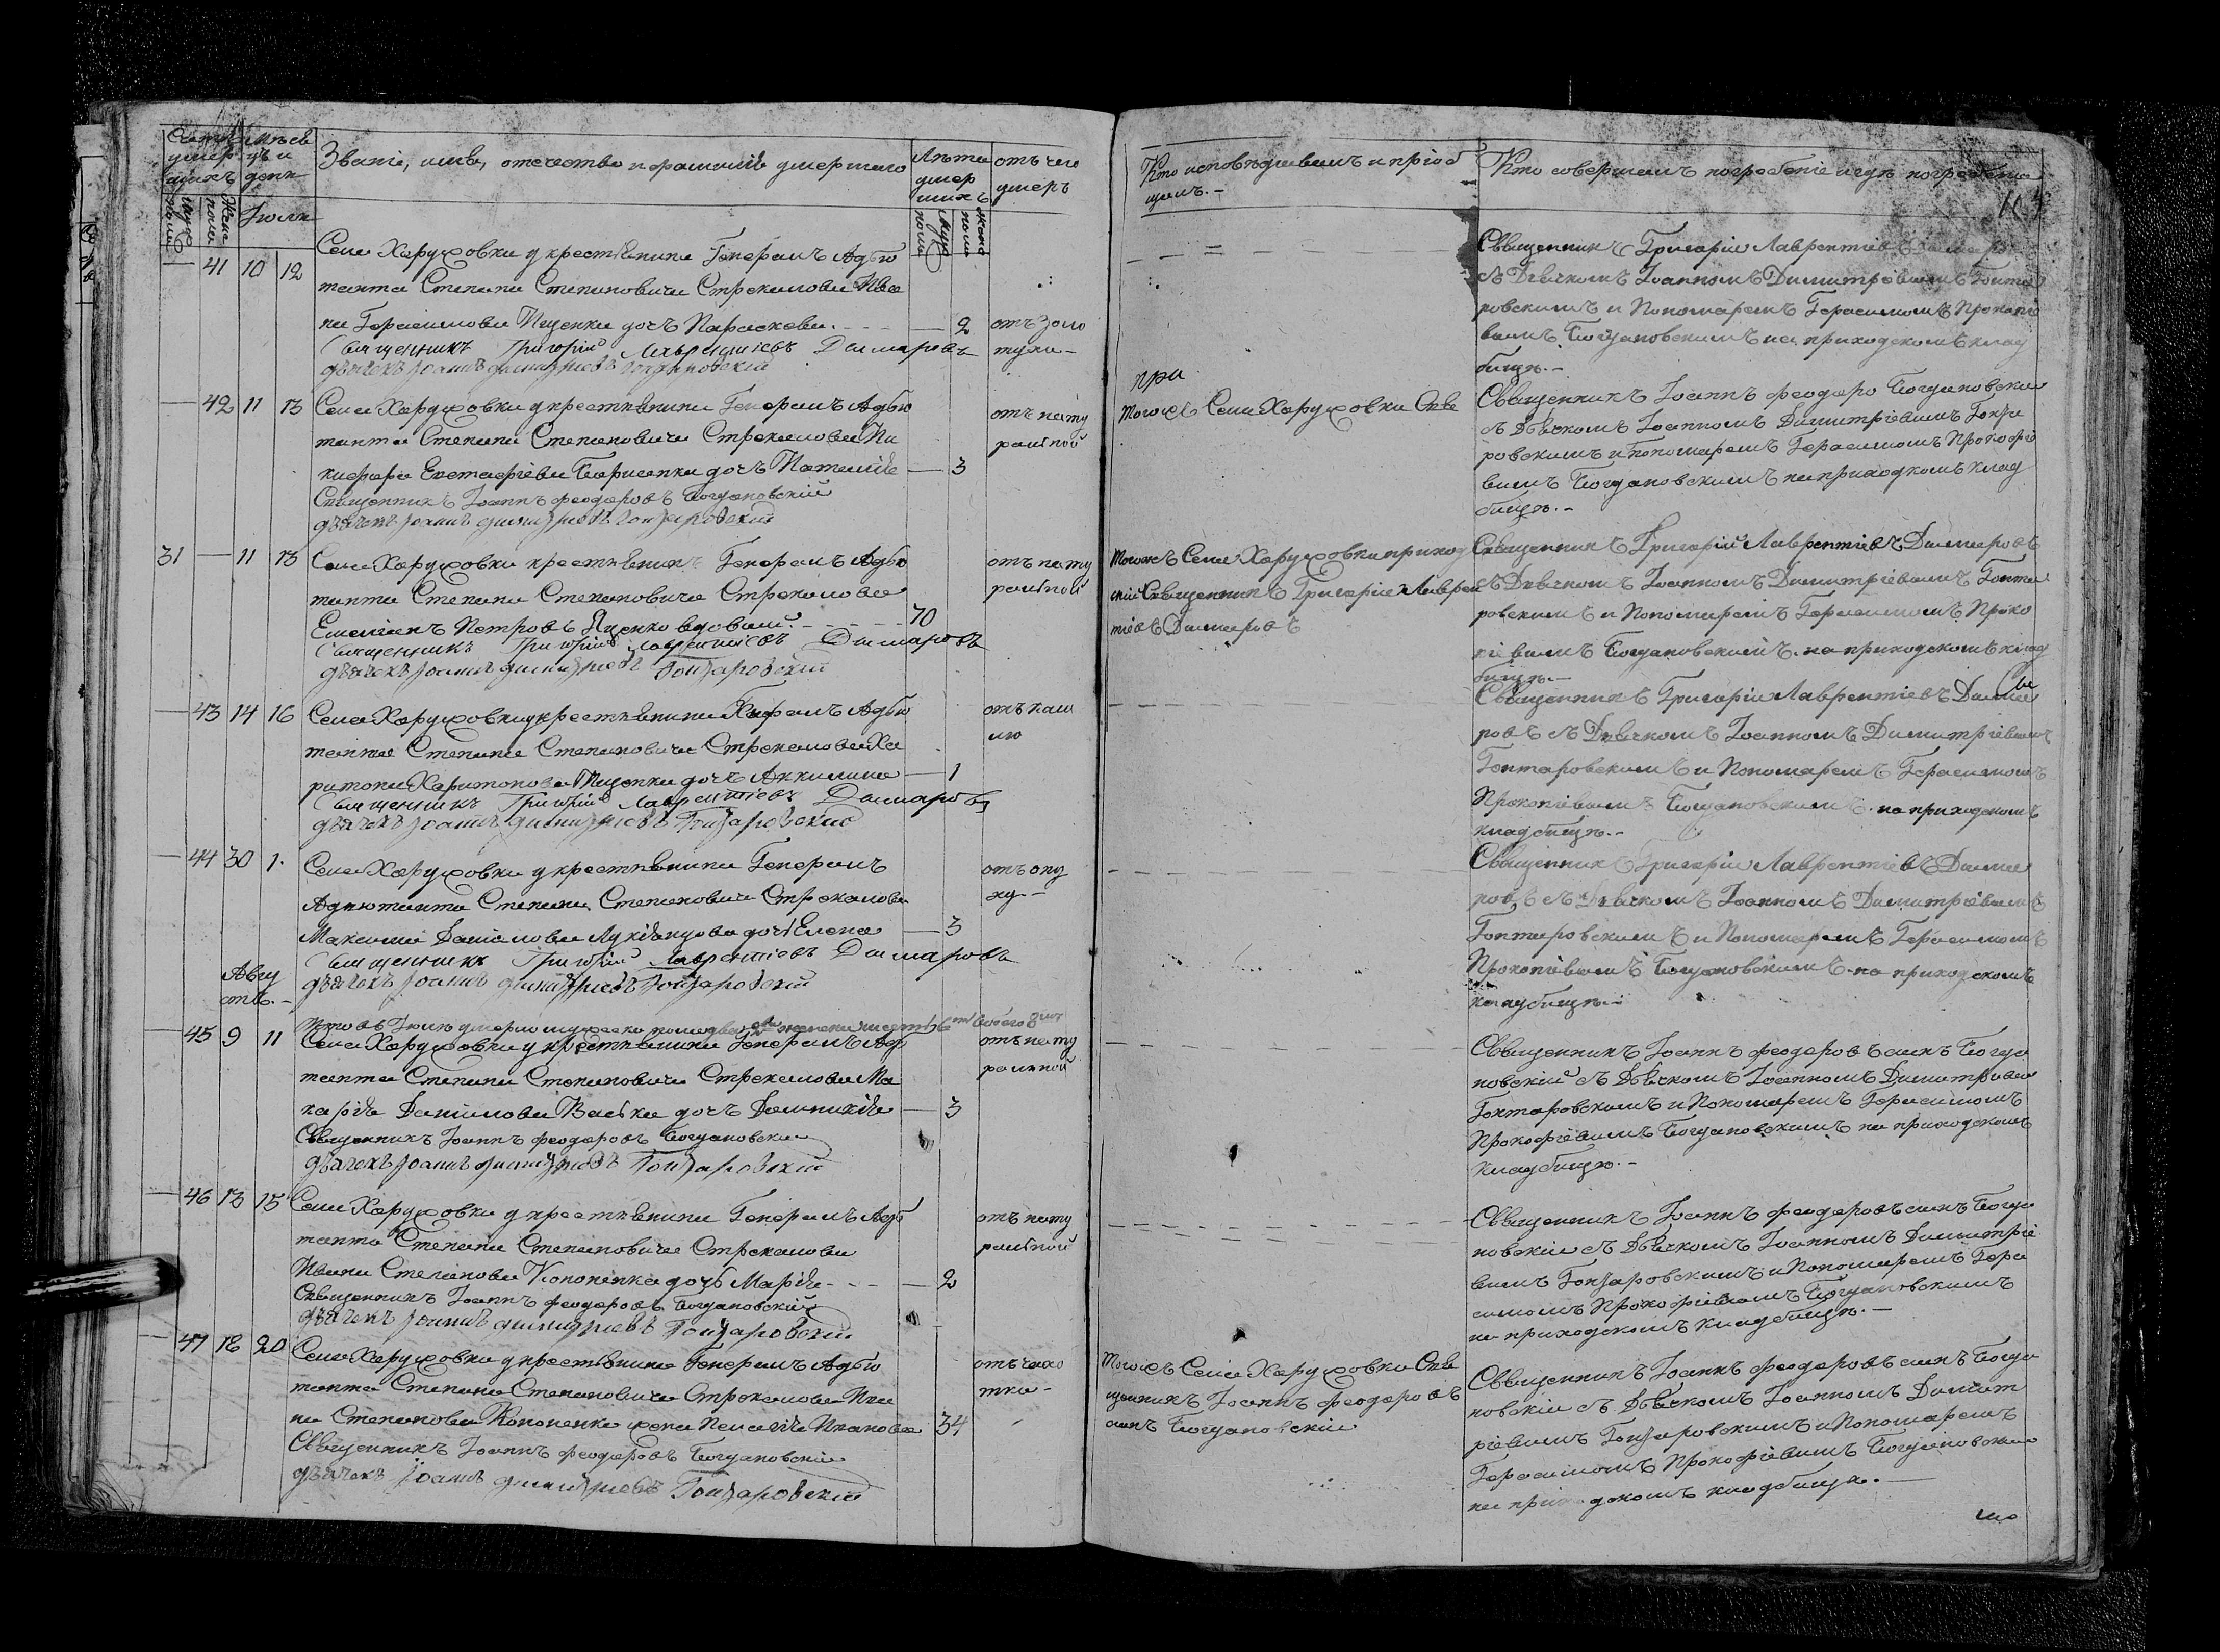 Счетъ умершихъ
Мѣсяцъ и день
Званіе, имя, отечество и фамилія умершаго
Лѣта умершихъ
отъ чего умеръ
Кто исповѣдывалъ и пріобщалъ.-
Кто совершалъ погребеніе и гдѣ погребены
Муж: пола
Жен: пола
Іюля
Муж: пола
Жена пола
— 41 10 12
Села Харуховки у крестьянина Генералъ Адъю
танта Степана Степановича Стрекалова Ива
на Герасимова Ищенка дочь Параскева. - - - — 2
отъ золо
тухи-
Священникъ Григорій Лаврентіевъ Дашаровъ
дьячекъ Іоаннъ Димитріевъ Гонтаровскій
Священникъ Григорій Лаврентіевъ
съ Дьячкомъ Іоанномъ Димитріевымъ Гонта
ровскимъ и Пономаремъ Герасимомъ Прокопіе
вымъ Богдановскимъ на приходскомъ клад
бищѣ.-
— 42 11 13
Села Харуховки у крестьянина Генералъ Адъю
танта Степана Степановича Стрекалова Ни
кифора Евстафіева Борисенка дочь Наталія — 3
отъ нату
ральной
Священникъ Іоаннъ Феодоровъ Богдановскій
дьячекъ Іоаннъ Димитріевъ Гонтаровскій
при
тогожъ Села Харуховки Свя
Священникъ Іоаннъ Феодоро Богдановскій
съ Дьячкомъ Іоанномъ Димитріевымъ Гонта
ровскимъ и пономаремъ Герасимомъ Прокофіе
вымъ Богдановскимъ на приходкомъ клад
бищѣ.-
31 — 11 13
Села Харуховки крестьянинъ Генералъ Адъю
танта Степана Степановича Стрекалова
Емелianъ Петровъ Яценко вдовый. - - - - - 70
отъ нату
ральной
Священникъ Григорій Лаврентіевъ Дашаровъ
дьячекъ Іоаннъ Димитріевъ Гонтаровскій
тогожъ Села Харуховки приход
скій Священникъ Григорій Лаврен
тіевъ Дашаровъ
Священникъ Григорій Лаврентіевъ Дашаровъ
съ Дьячкомъ Іоанномъ Димитріевымъ Гонта
ровскимъ и Пономаремъ Герасимомъ Проко
піевымъ Богдановскимъ. на приходскомъ клад
бищѣ.-
— 43 14 16
Села Харуховки у крестьянина Генералъ Адъю
танта Степана Степановича Стрекалова Ха
ритона Харитонова Тищенка дочь Аккилина — 1
отъ каш
лю
Священникъ Григорій Лаврентіевъ Дашаровъ
дьячекъ Іоаннъ Димитріевъ Гонтаровскій
Священникъ Григорій Лаврентіевъ Даша
ровъ съ Дьячкомъ Іоанномъ Димитріевымъ
Гонтаровскимъ и Пономаремъ Герасимомъ
Прокопіевымъ Богдановскимъ. на приходскомъ
кладбищѣ.-
— 44 30 1.
Села Харуховки у крестьянина Генералъ
Адъютанта Степана Степановича Стрекалова
Максима Данилова Лукіанцова дочь Елена — 3
отъ опу
ху--
Священникъ Григорій Лаврентіевъ Дашаровъ
дьячекъ Іоаннъ Димитріевъ Гонтаровскій
Священникъ Григорій Лаврентіевъ Даша
ровъ съ Дьячкомъ Іоанномъ Димитріевымъ
Гонтаровскимъ и Пономаремъ Герасимомъ
Прокопіевымъ Богдановскимъ. на приходскомъ
кладбищѣ.-
Авгу
ста.-
Итого въ Іюлѣ умерло мужеска пола два женска шесть всего 8
— 45 9 11
Села Харуховки у крестьянина Генералъ Адъ
танта Степана Степановича Стрекалова Ма
карія Данилова Васька дочь Домникія — 3
отъ нату
ральной
Священникъ Іоаннъ Феодоровъ Богдановскій
дьячекъ Іоаннъ Димитріевъ Гонтаровскій
Священникъ Іоаннъ Феодоровъ сынъ Богда
новскій съ Дьячкомъ Іоанномъ Димитріева
Гонтаровскимъ и Пономаремъ Герасимомъ
Прокофіевымъ Богдановскимъ на приходскомъ
кладбищѣ.-
— 46 13 15
Села Харуховки у крестьянина Генералъ Адъ
танта Степана Степановича Стрекалова
Ивана Степанова Кононенка дочь Марія - - - — 2
отъ нату
ральной
Священникъ Іоаннъ Феодоровъ Богдановскій
дьячекъ Іоаннъ Димитріевъ Гонтаровскій
Священникъ Іоаннъ Феодоровъ сынъ Богда
новскій съ Дьячкомъ Іоанномъ Димитріе
вымъ Гонтаровскимъ и Пономаремъ Гера
симомъ Прокофіевымъ Богдановскимъ
на приходскомъ кладбищѣ.-
— 47 18 20
Села Харуховки у крестьянина Генералъ Адъю
танта Степана Степановича Стрекалова Ива
на Степанова Кононенка жена Пелагія Иванова 34
отъ чахо
тки-
Священникъ Іоаннъ Феодоровъ Богдановскій
дьячекъ Іоаннъ Димитріевъ Гонтаровскій
Тогожъ Села Харуховки Свя
щенникъ Іоаннъ Феодоровъ
сынъ Богдановскій
Священникъ Іоаннъ Феодоровъ сынъ Богда
новскій съ Дьячкомъ Іоанномъ Димит
ріевымъ Гонтаровскимъ и Пономаремъ
Герасимомъ Прокофіевымъ Богдановским
на приходскомъ кладбищѣ.-